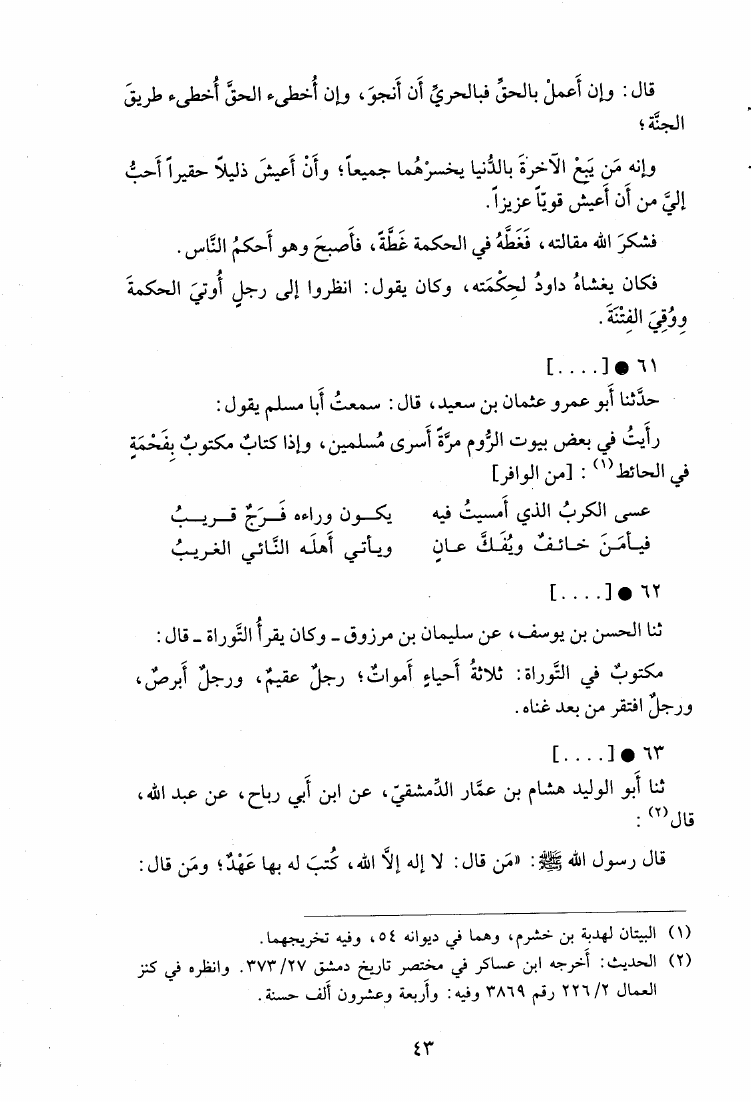 قال: وإن أعملْ بالحقِّ فبالحريِّ أن أنجوَ، وإن أُخطىء الحقَّ أُخطىء طريقَ
الجنَّة؛
وإنه مَن يَبِعْ الآخرةَ بالدُّنيا يخسرْهُما جميعاً؛ وأنْ أعيشَ ذليلاً حقيراً أحبُّ
إليَّ من أن أعيش قويّاً عزيزاً.
فشكرَ الله مقالته، فَغَطَّهُ في الحكمة غَطَّةً، فأصبحَ وهو أحكمُ النَّاس.
فكان يغشاهُ داودُ لحِكْمَته، وكان يقول: انظروا إلى رجلٍ أُوتيَ الحكمةَ
ووُقِيَ الفِتْنَةَ.
٦١ ● [....]
حدَّثنا أبو عمرو عثمان بن سعيد، قال: سمعتُ أبا مسلم يقول:
رأيتُ في بعض بيوت الرُّوم مرَّةً أسرى مُسلمين، وإذا كتابٌ مكتوبٌ بِفَحْمَةٍ
في الحائط(١): [من الوافر]
عسى الكربُ الذي أمسيتُ فيه يكــون وراءه فَــرَجٌ قــريــبُ
فيـأمَـنَ خـائـفٌ ويُفَـكَّ عـانٍ ويـأتـي أهلَـه النَّـائـي الغـريـبُ
٦٢ ● [....]
ثنا الحسن بن يوسف، عن سليمان بن مرزوق ـ وكان يقرأُ التَّوراة ـ قال:
مكتوبٌ في التَّوراة: ثلاثةُ أحياءٍ أمواتٌ؛ رجلٌ عقيمٌ، ورجلٌ أبرصٌ،
ورجلٌ افتقر من بعد غناه.
٦٣ ● [....]
ثنا أبو الوليد هشام بن عمَّار الدِّمشقيّ، عن ابن أبي رباح، عن عبد الله،
قال(٢):
قال رسول الله ﷺ: «مَن قال: لا إله إلَّا الله، كُتبَ له بها عَهْدٌ؛ ومَن قال:
(١) البيتان لهدبة بن خشرم، وهما في ديوانه ٥٤، وفيه تخريجهما.
(٢) الحديث: أخرجه ابن عساكر في مختصر تاريخ دمشق ٣٧٣/٢٧. وانظره في كنز
العمال ٢٢٦/٢ رقم ٣٨٦٩ وفيه: وأربعة وعشرون ألف حسنة.
٤٣